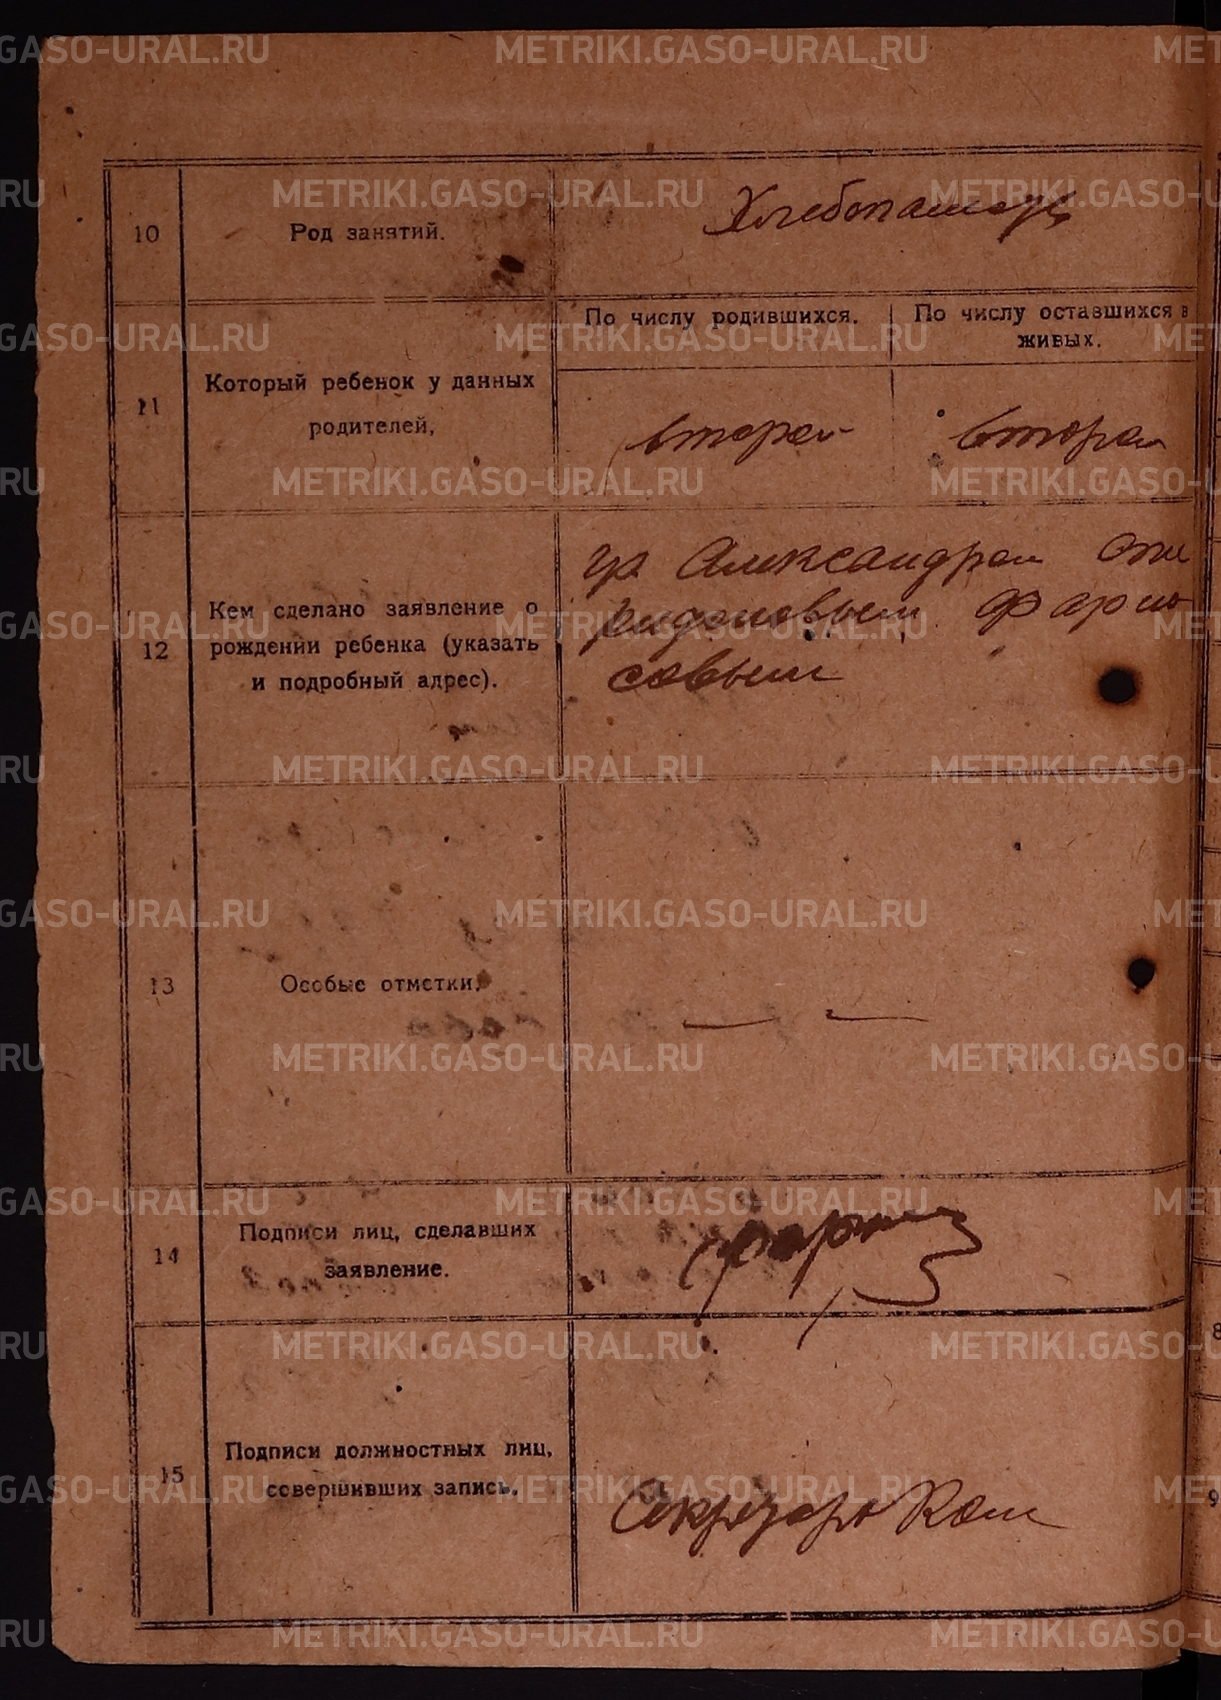 10
Род занятий.
Хлебопашец
11
Который ребенок у данных
родителей,
По числу родившихся.
По числу оставшихся в
живых.
второй
второй
12
Кем сделано заявление о
рождении ребенка (указать
и подробный адрес).
гр Александром Спи
ридоновым Фарно
совым
13
Особые отметки.
— —
14
Подписи лиц, сделавших
заявление.
15
Подписи должностных лиц,
совершивших запись.
Секретарь
8
9
METRIKI.GASO-URAL.RU